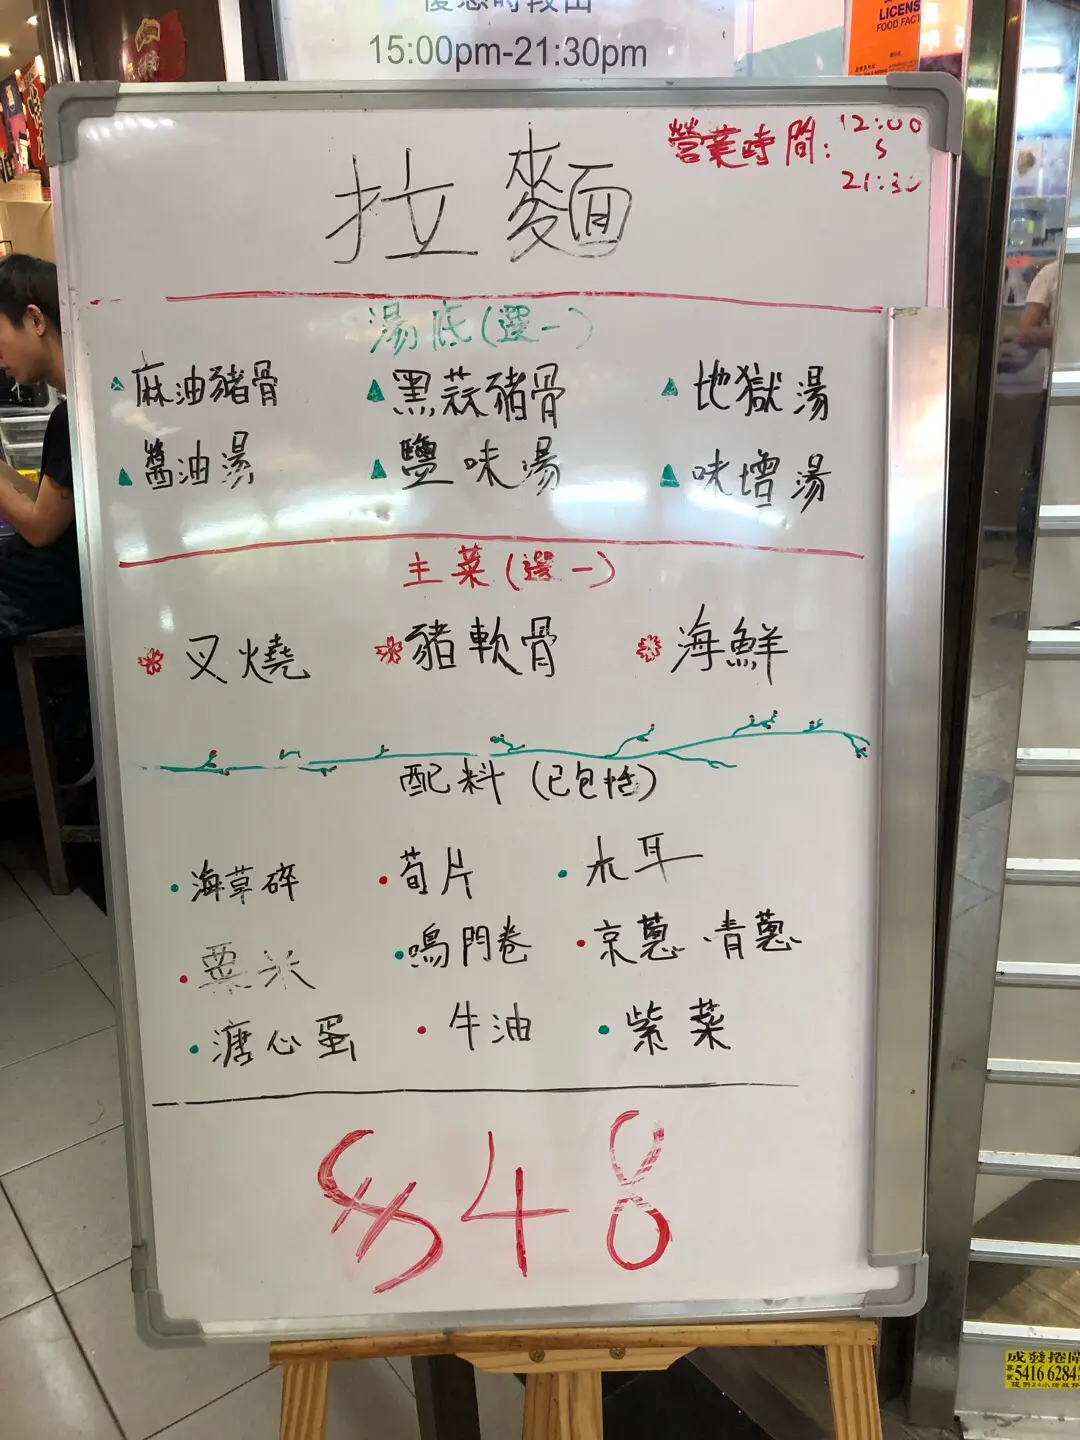 15:00pm-21:30pm
LICENS
FOOD FACT
營業時間: 12:00
21:30
拉麵
湯底(選一)
麻油豬骨 黑蒜豬骨 地獄湯
醬油湯 鹽味湯 味增湯
主菜(選一)
叉燒 豬軟骨 海鮮
配料(已包括)
海草碎 荀片 木耳
粟米 鳴門卷 京蔥 青蔥
溏心蛋 牛油 紫菜
$48
成發捲閘
5416 6284